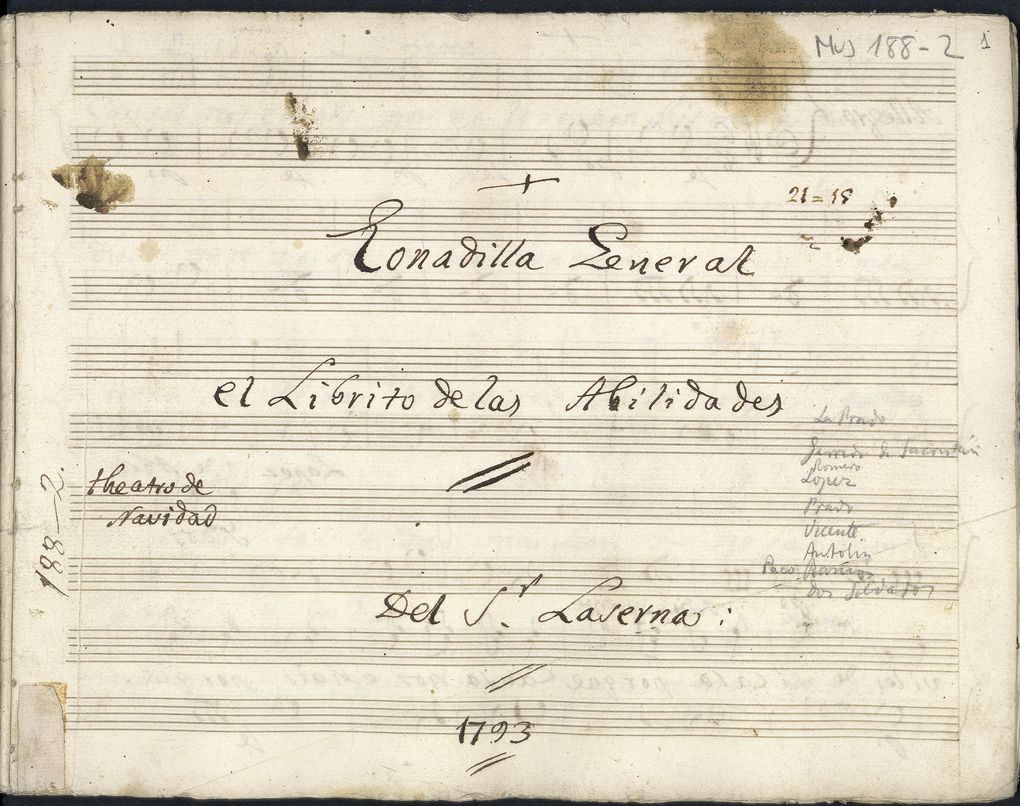 Mus 188-2
1
+
21=15
Tonadilla General
el Librito de las Abilidades
La Prado
Garrido
Romero
Lopez
theatro de
Navidad
Prado
Vicente
Antolin
Paco Ramos
Dos Soldados
188-2.
Del S.r Laserna:
1793